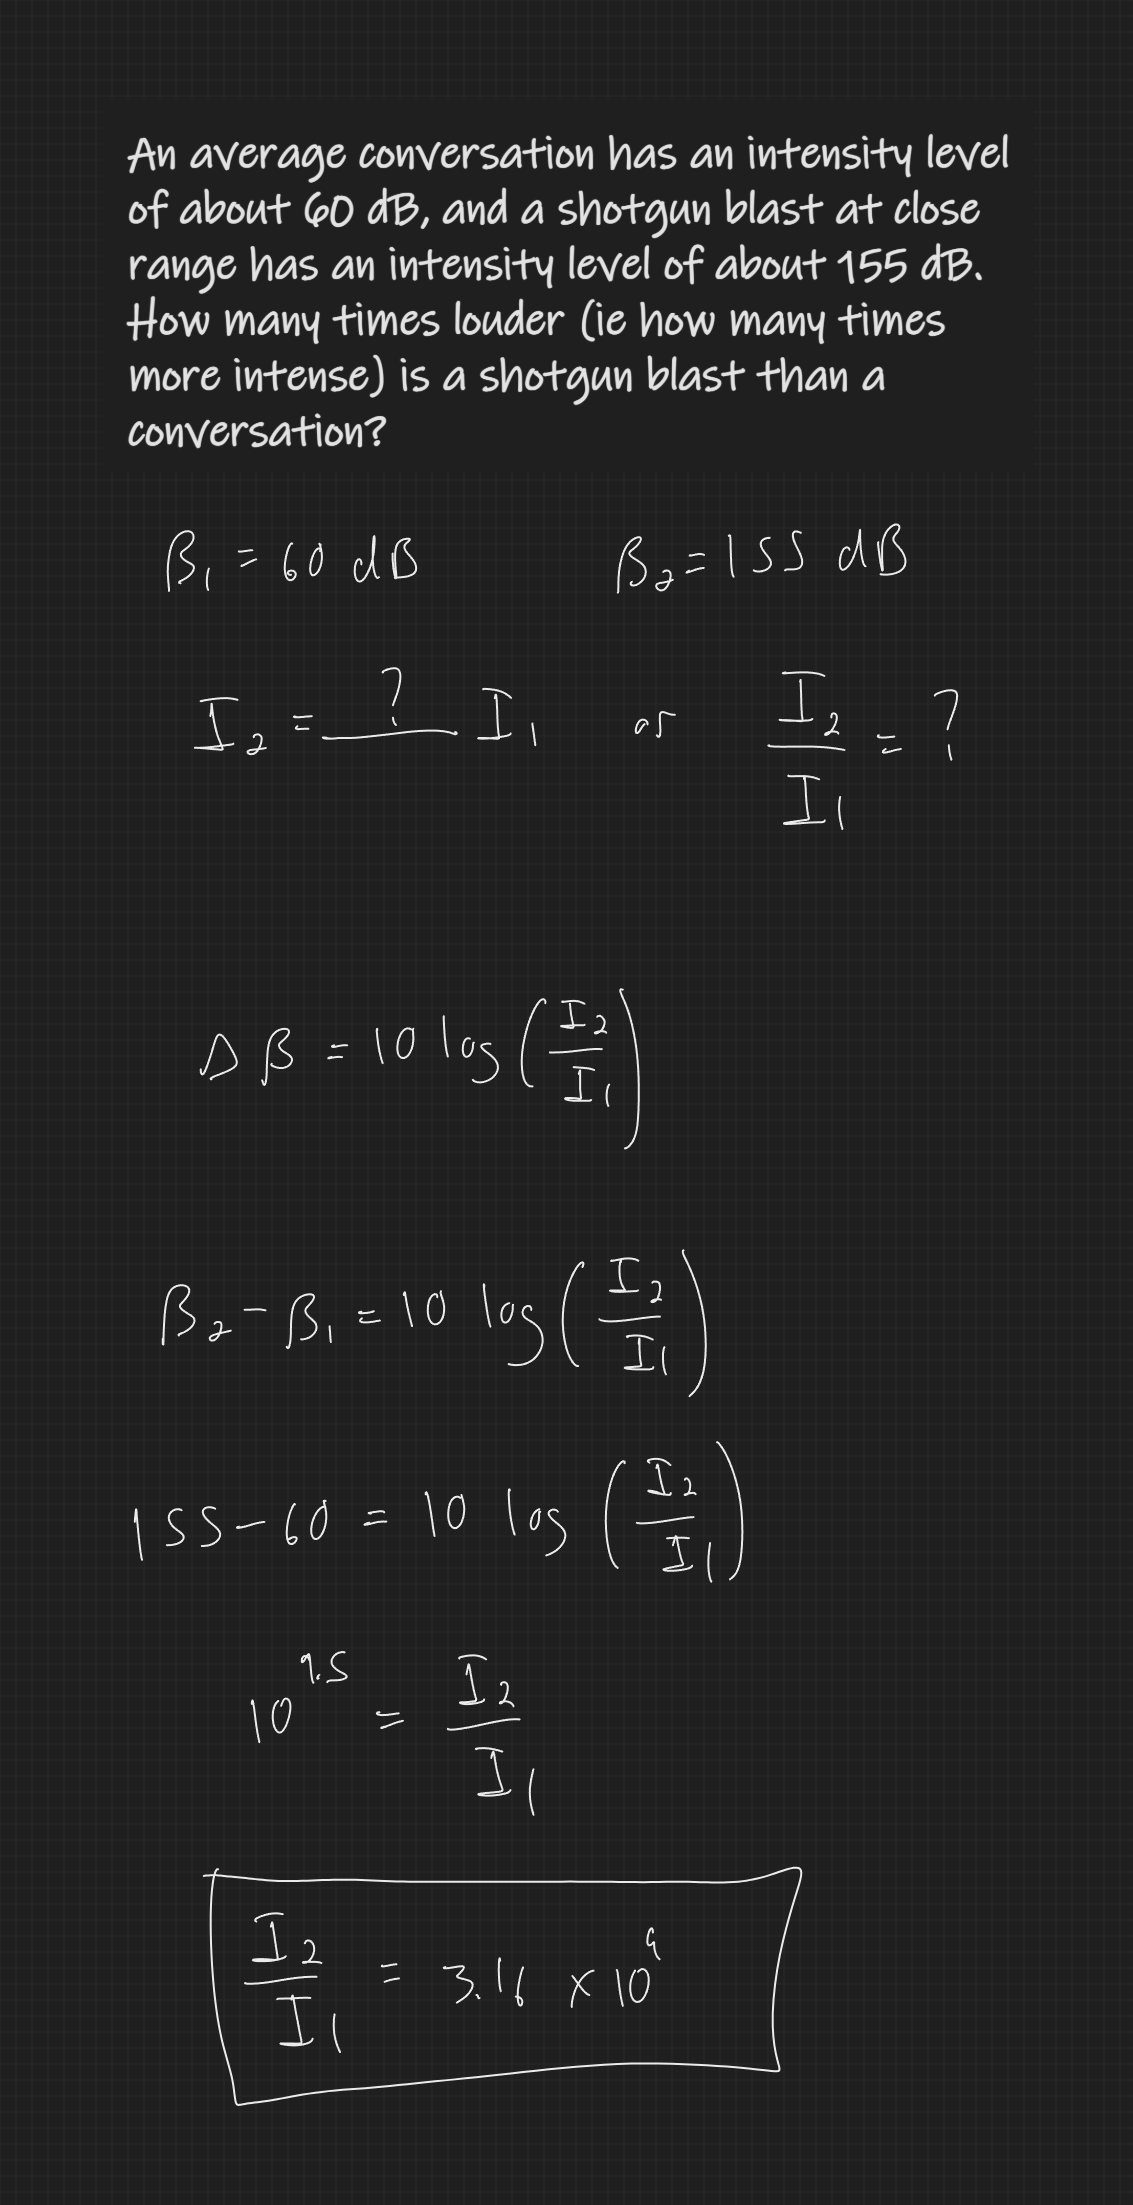 An average conversation has an intensity level
of about 60 dB, and a shotgun blast at close
range has an intensity level of about 155 dB.
How many times louder (ie how many times
more intense) is a shotgun blast than a
conversation?
β₁ = 60 dB β₂ = 155 dB
I₂ = __?__ I₁ or I₂/I₁ = ?
Δβ = 10 log(I₂/I₁)
β₂ - β₁ = 10 log(I₂/I₁)
155 - 60 = 10 log(I₂/I₁)
10^9.5 = I₂/I₁
I₂/I₁ = 3.16 × 10^9